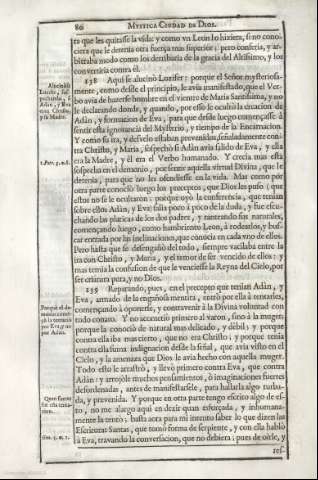 80 MYSTICA CIUDAD DE DIOS.
ra que les quitasse la vida: y como vn Leon lo hiziera, si no cono-
ciera que le detenia otra fuerça mas superior; pero conferia, y ar-
bitraba modo como los derribaria de la gracia del Altissimo, y los
convertiria contra él.
138 Aqui se alucinó Lucifer: porque el Señor mysteriosa-
mente, como desde el principio, le avia manifestado, que el Ver-
bo avia de hazerse hombre en el vientre de Maria Santissima, y no
le declarando donde, y quando, por esso le ocultó la creacion de
Adán, y formacion de Eva, para que desde luego començasse à
sentir esta ignorancia del Mysterio, y tiempo de la Encarnacion.
Y como su ira, y desvelo estaban prevenidos, señaladamente con-
tra Christo, y Maria, sospechó si Adán avia salido de Eva, y ella
era la Madre, y él era el Verbo humanado. Y crecia mas esta
sospecha en el demonio, por sentir aquella virtud Divina, que le
detenia, para que no les ofendiesse en la vida. Mas como por
otra parte conoció luego los preceptos, que Dios les puso (que
estos no se le ocultaron: porque oyó la conferencia, que tenian
sobre ellos Adán, y Eva) salia poco à poco de la duda, y fue escu-
chando las platicas de los dos padres, y tanteando sus naturales,
començando luego, como hambriento Leon, à rodearlos, y bus-
car entrada por las inclinaciones, que conocia en cada vno de ellos.
Pero hasta que se desengañó del todo, siempre vacilaba entre la
ira con Christo, y Maria, y el temor de ser vencido de ellos: y
mas temia la confusion de que le venciesse la Reyna del Cielo, por
ser criatura pura, y no Dios.
139 Reparando, pues, en el precepto que tenian Adán, y
Eva, armado de la engañosa mentira, entró por ella à tentarles,
començando à oponerse, y contravenir à la Divina voluntad con
todo conato. Y no acometió primero al varon, sino à la muger,
porque la conoció de natural mas delicado, y débil; y porque
contra ella iba mas cierto, que no era Christo; y porque tenia
contra ella suma indignacion desde la señal, que avia visto en el
Cielo, y la amenaza que Dios le avia hecho con aquella muger.
Todo esto le arrastró, y llevó primero contra Eva, que contra
Adán: y arrojóle muchos pensamientos, ò imaginaciones fuertes
desordenadas, antes de manifestarsele, para hallarla algo turba-
da, y prevenida. Y porque en otra parte tengo escrito algo de es-
to, no me alargo aqui en dezir quan esforçada, y inhumana-
mente la tentó: basta aora para mi intento saber lo que dizen las
Escrituras Santas, que tomó forma de serpiente, y con ella habló
à Eva, travando la conversacion, que no debiera; pues de oirle, y
res-
Alucinóse
y la Madre.
1. Petr. 5. v. 8.
Porque el de-
por Eva, y no
por Adán.
Gen. 3. v. 1.